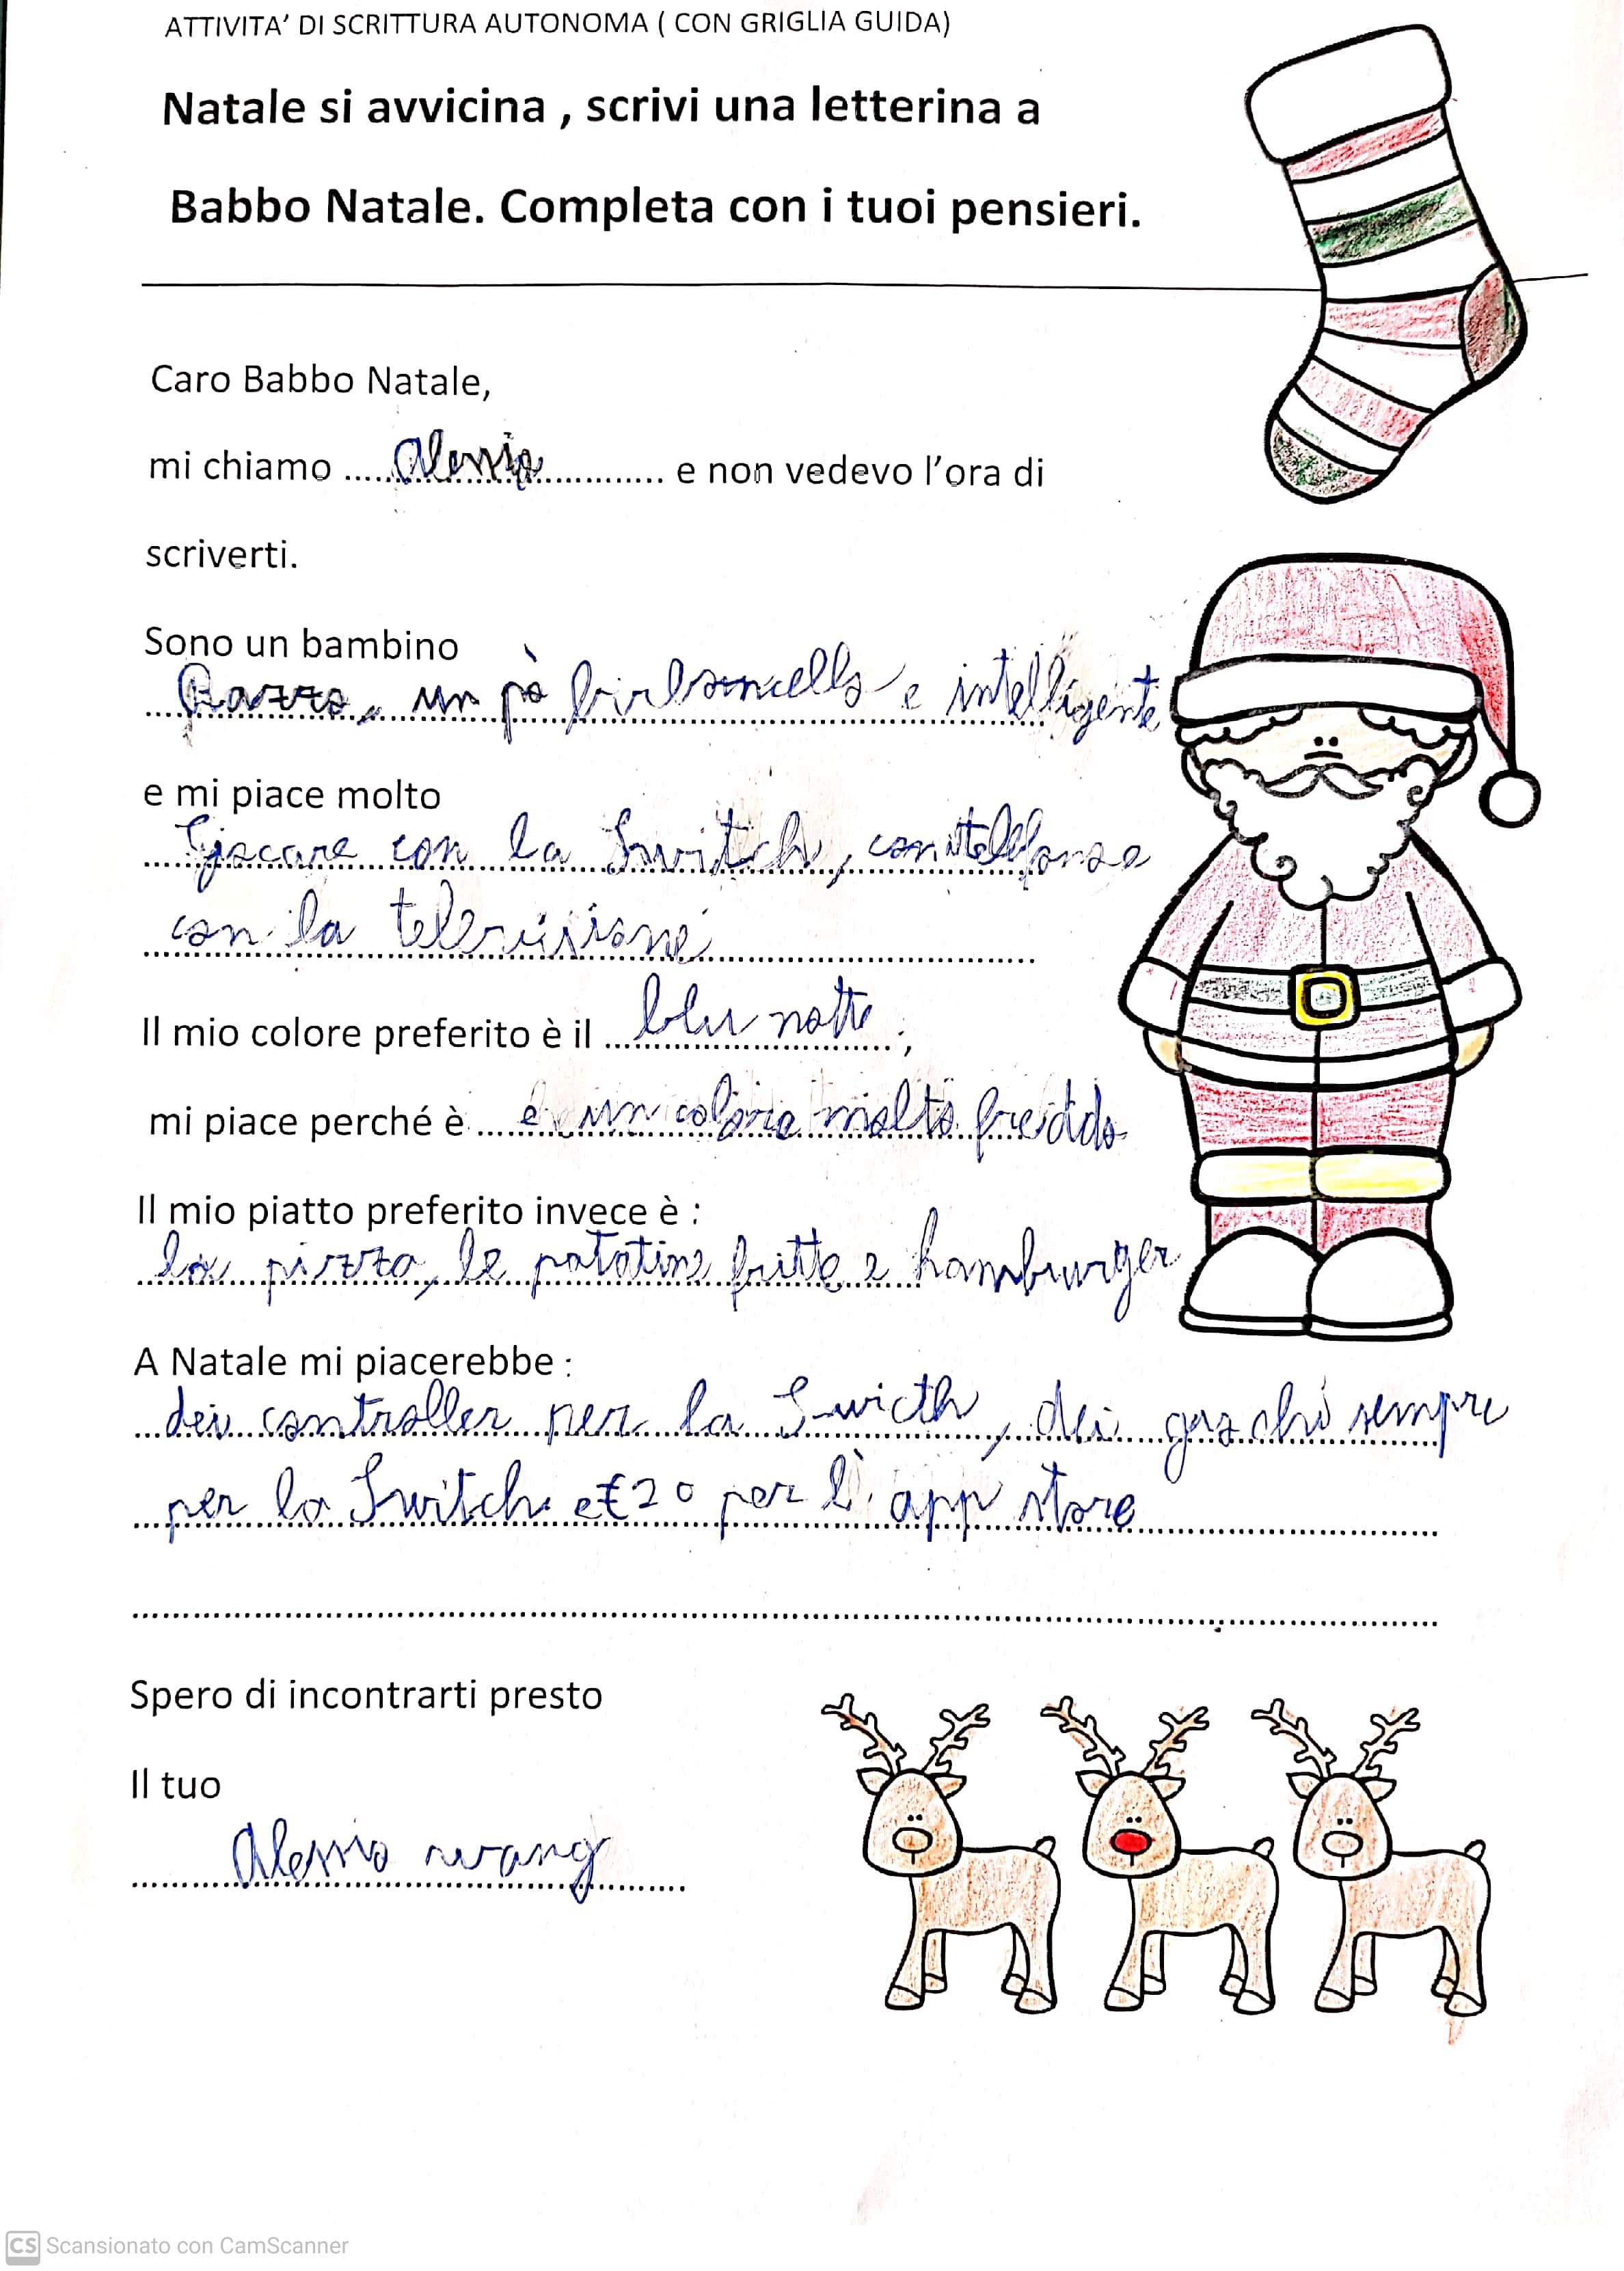 ATTIVITA' DI SCRITTURA AUTONOMA ( CON GRIGLIA GUIDA)
Natale si avvicina , scrivi una letterina a
Babbo Natale. Completa con i tuoi pensieri.
Caro Babbo Natale,
mi chiamo ....Alessio.... e non vedevo l'ora di
scriverti.
Sono un bambino
Pazzo, un pò birboncello e intelligente
e mi piace molto
Gjocare con la Switch, con telefono e
con la televisione
Il mio colore preferito è il blu notte ;
mi piace perché è e un colore molto freddo
Il mio piatto preferito invece è :
la pizza, le patatine fritte e hamburger
A Natale mi piacerebbe :
dei controller per la Swicth, dei giochi sempre
per la Switch e €20 per l' app store
Spero di incontrarti presto
Il tuo
Alessio wang
CS Scansionato con CamScanner